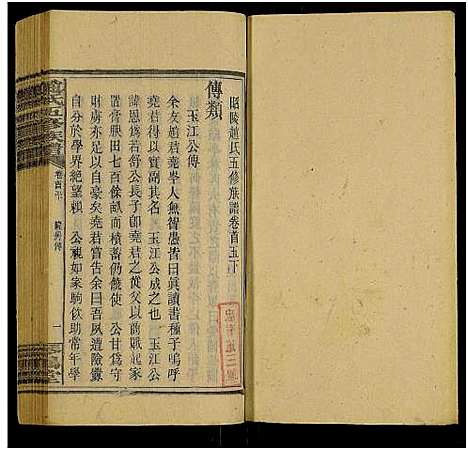 昭陵趙氏五修族譜卷首五下
傳類
玉江公傳
余友趙君堯峯人無智愚皆曰眞讀書種子嗚呼
堯君得以實副其名者玉江公成之也 玉江公
諱恩綬公長子卽堯君之父以前賦起家
置膏腴田七百餘畝而積畜仍饒使 公甘爲守
財虜亦足以自豪矣堯君嘗告余曰吾夙遭險釁
自分於學界絕望賴 公視如家駒佽助常年學
趙氏五修族譜
卷首下
一